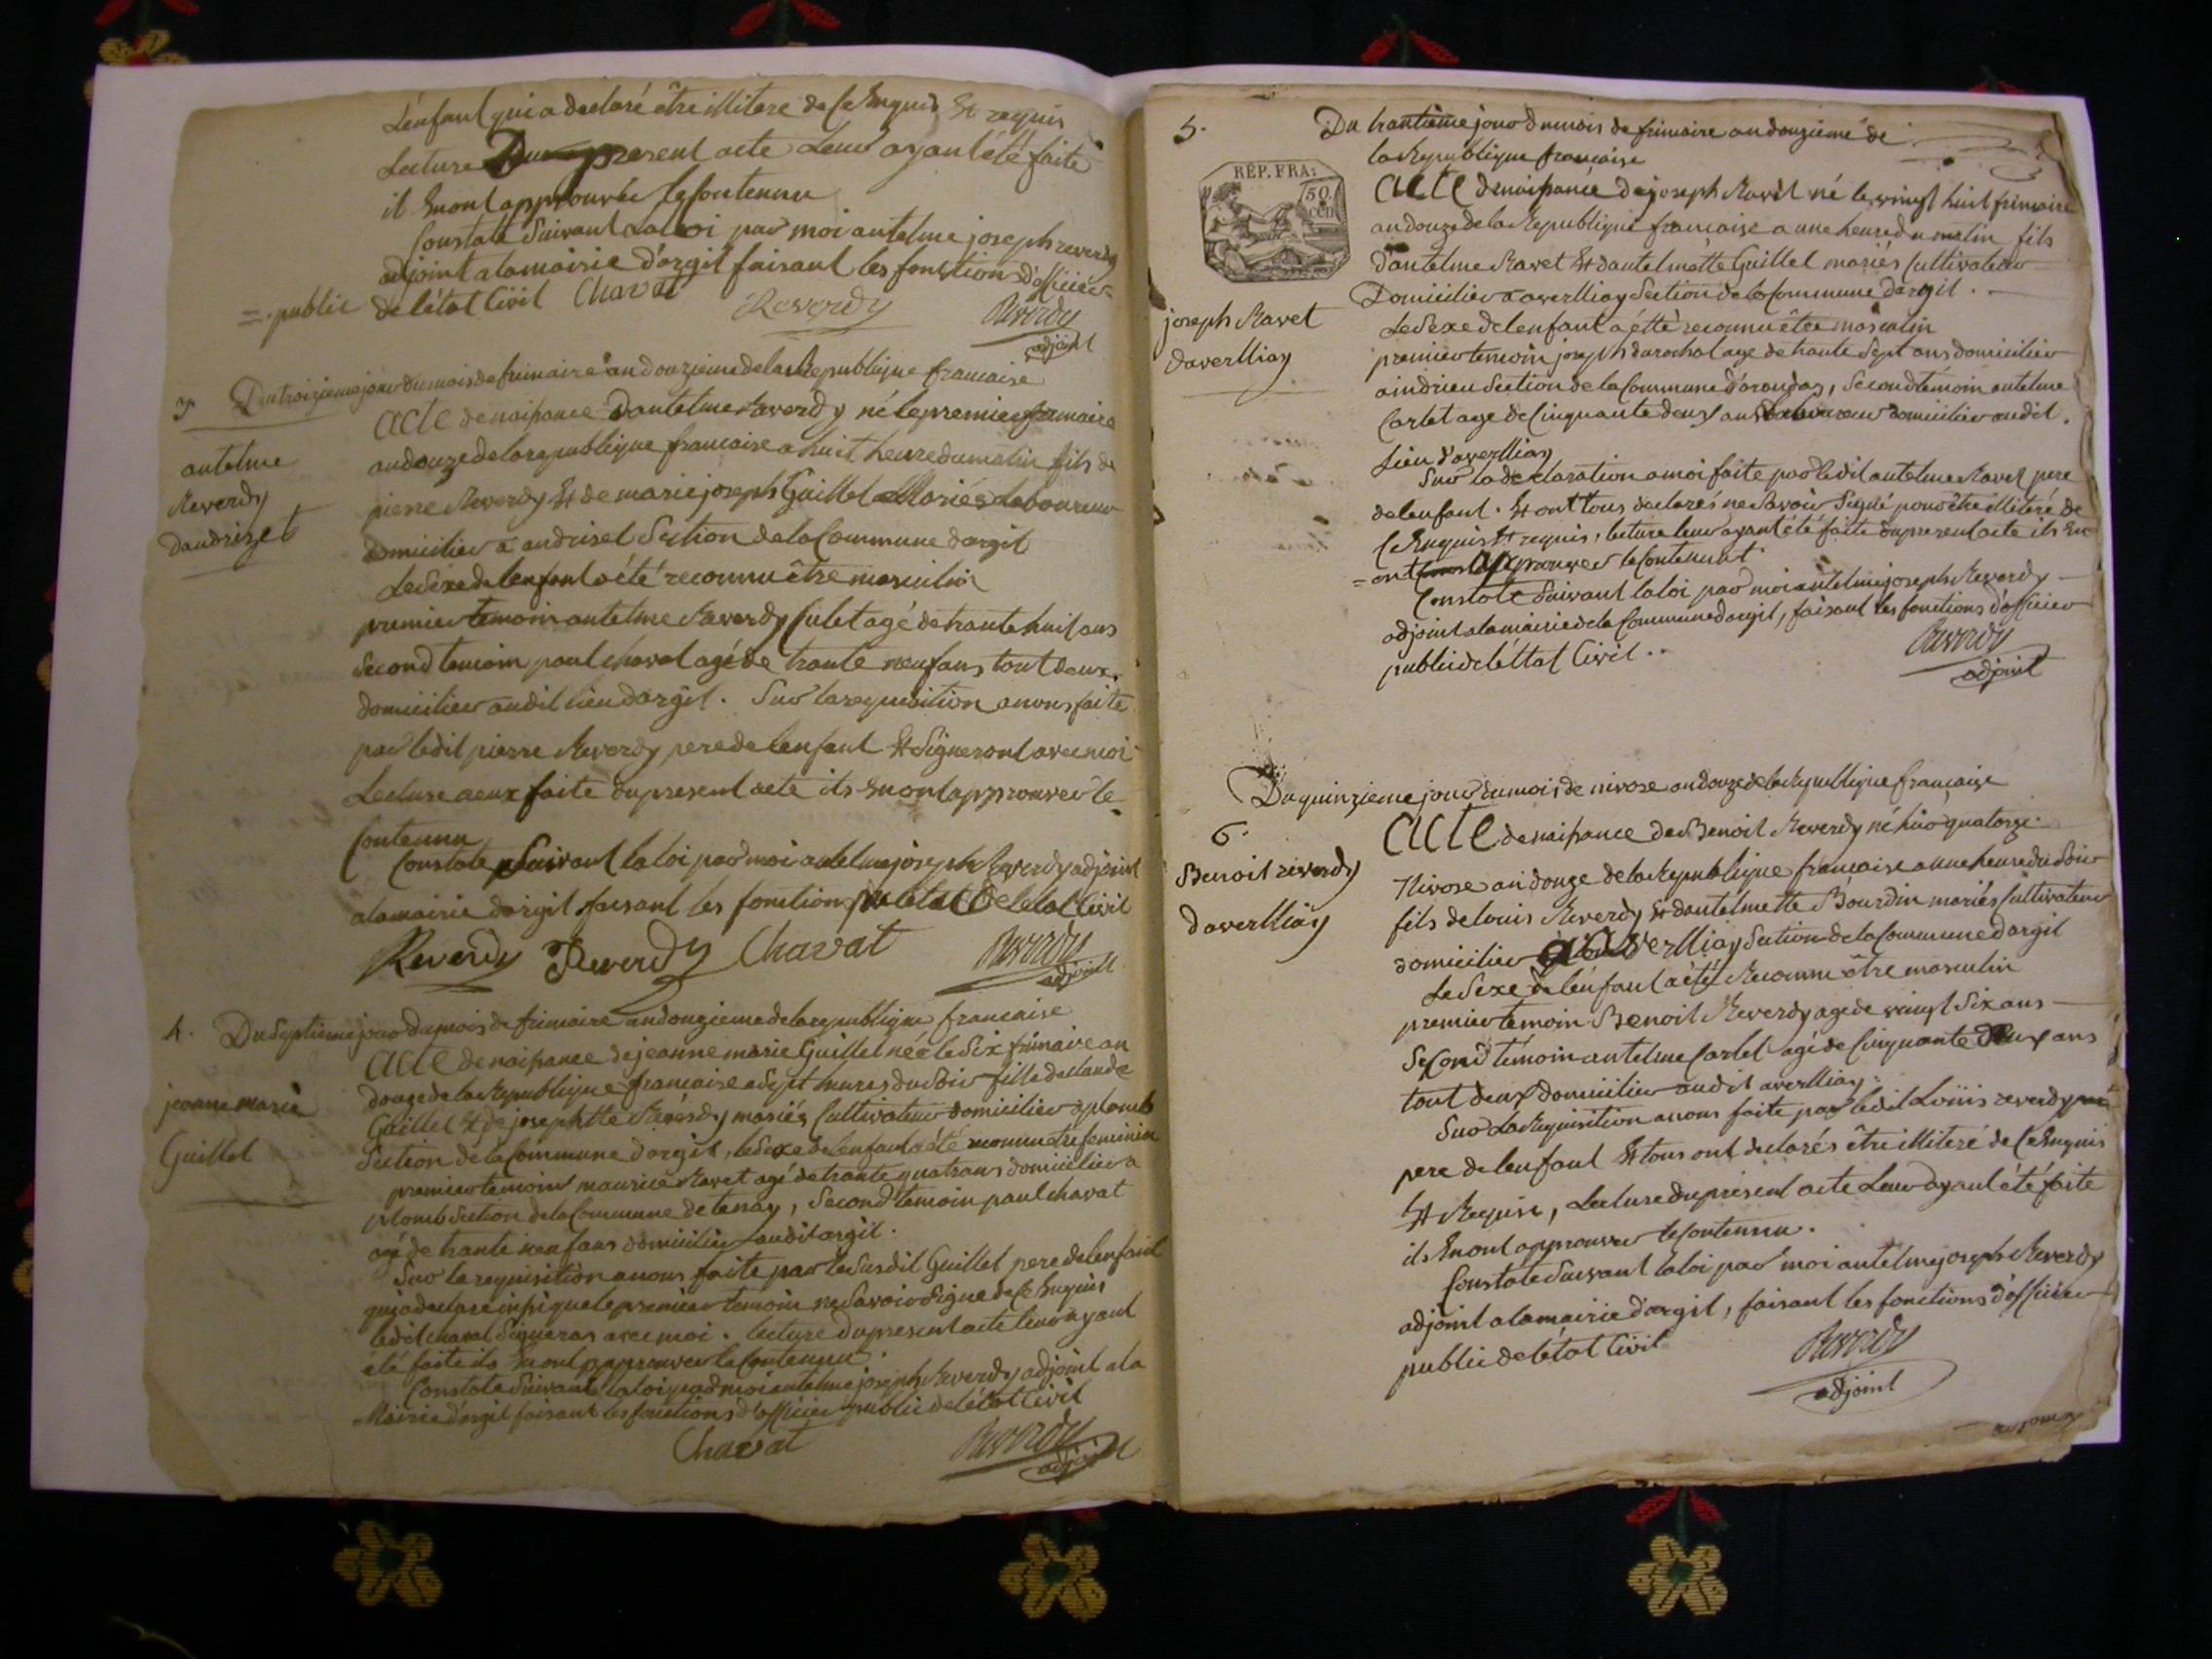 L'enfant qui a declaré être illitere de ce Enquis Et requis
Lecture Du present acte Leur ayant été faite
il Enont approuvée le contennu
Constaté Suivant la Loi par moi antelme joseph reverdy
adjoint a la mairie d'argit faisant les fonction d'officier
=. public
de l'état Civil Chavat Reverdy Reverdy
adjoint
3. Du troizieme jour du mois de frimaire an douzieme de la Republique francaise
antelme
Reverdy
dandrizet
acte de naissance D'antelme Reverdy né le premier frimaire
an douze de la republique francaise a huit heure du matin fils de
pierre Reverdy Et de marie joseph Guillet Mariés Laboureur
domicilier a andriset Section de la Commune dargit
Le Sexe de lenfant a été reconnu être masculin
premier temoin antelme Reverdy Culet agé de trante huit ans
Second temoin paul chavat agé de trante neuf ans tout deux
domicilier audit lieu dargit. Sur la requisition a nous faite
par ledit pierre Reverdy pere de lenfant Et Signeront avec moi
Lecture a eux faite du present acte ils Enont approuver le
Contennu
Constaté Suivant la loi par moi antelme joseph Reverdy adjoint
a la mairie dargit faisant les fonctions de letat Civil
Reverdy Reverdy Chavat Reverdy
adjoint
4. Du Septieme jour du mois de frimaire an douzieme de la republique francaise
jeanne marie
Guillet
acte de naissance de jeanne marie Guillet née le Six frimaire an
douze de la Republique francaise a Sept heures du Soir fille de Claude
Guillet Et de josephtte Reverdy mariés Cultivateur domicilier a plomb
Section de la Commune d'argit, le Sexe de lenfant a été reconnu etre feminin
premier temoin maurice Ravet agé de trante quatre ans domicilier a
plomb Section de la Commune de tenay, Second temoin paul chavat
agé de trante neuf ans domicilier audit argit.
Sur la requisition a nous faite par le Susdit Guillet pere de lenfant
qui a declaré insi que le premier temoin ne Savoir Signe de ce Enquis
ledit chavat Signeras avec moi. lecture du present acte leur ayant
été faite ils Enont approuver le Contennu.
Constaté Suivant la loi par moi antelme joseph Reverdy adjoint a la
Mairie dargit faisant les fonctions d'officier public de létat Civil
Chavat Reverdy
adjoint
5. Du trantième jour du mois de frimaire an douzieme de
la Republique francaise
RÉP. FRA:
50
cen
joseph Ravet
daverlliay
acte de naissance de joseph Ravet né le vingt huit frimaire
an douze de la Republique francaise a une heure du matin fils
d'antelme Ravet Et dantelmette Guillet mariés Cultivateur
Domicilier a averlliay Section de la Commune dargit.
Le Sexe de lenfant a étté reconnu être masculin
premier temoin joseph darochat age de trante Sept ans domicilier
a indrieu Section de la Commune d'arandas, Second temoin antelme
Cartet age de Cinquante deux ans Laboureur domicilier audit
Lieu d'averlliay
Sur la declaration a moi faite par ledit antelme Ravet pere
de lenfant. Et ont tous declarés ne Savoir Signé pour être illiteré de
Ce Enquis Et requis, lecture leur ayant été faite du present acte ils En
=ont approuver le Contenunt
Constaté Suivant la loi par moi antelme joseph Reverdy
adjoint a la mairie de la Commune dargit, faisant les fonctions d'officier
public de léttat Civil..
Reverdy
adjoint
Du quinzieme jour du mois de nivose an douze de la Republique francaise
6.
Benoit reverdy
daverlliay
acte de naissance de Benoit Reverdy né hier quatorze
Nivose an douze de la Republique francaise a une heure du Soir
fils de Louis Reverdy Et dantelmette Bourdin mariés Cultivateur
domicilier a averlliay Section de la Commune dargit
Le Sexe de lénfant a été Reconnu être masculin
premier temoin Benoit Reverdy age de vaingt Six ans
Second témoin antelme Cartet agé de Cinquante deux ans
tout deux domicilier audit averlliay.
Sur la Requisition a nous faite par ledit Loüis reverdy
pere de lenfant Et tous ont declarés être illiteré de Ce Enquis
Et Requis, Lecture du present acte Leur ayant été faite
ils Enont approuver le Contennu.
Constaté Suivant la loi par moi antelme joseph Reverdy
adjoint a la mairie d'argit, faisant les fonctions d'officier
public de létat Civil
Reverdy
adjoint